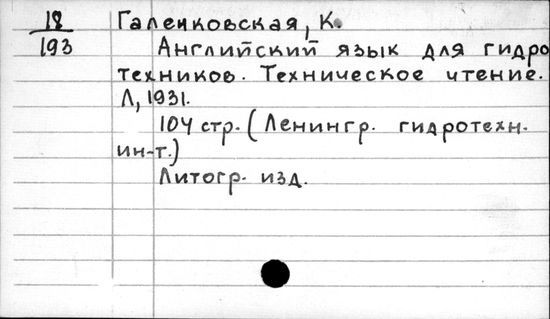 18
193
Галенковская, К.
Английский язык для гидро
техников. Техническое чтение.
Л, 1931.
104 стр. (Ленингр. гидротехн.
ин-т.)
Литогр. изд.